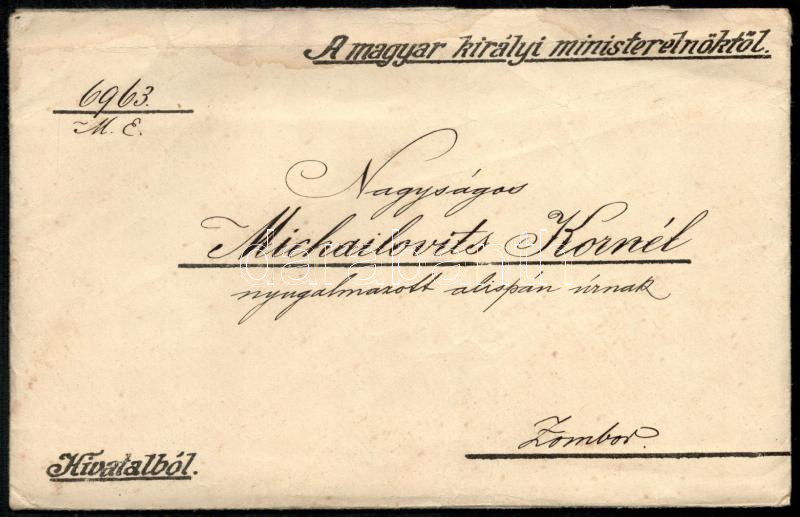 A magyar királyi ministerelnöktöl.
6963.
M. E.
Nagyságos
Michailovits Kornél
nyugalmazott alispán úrnak
Zombor.
Hivatalból.